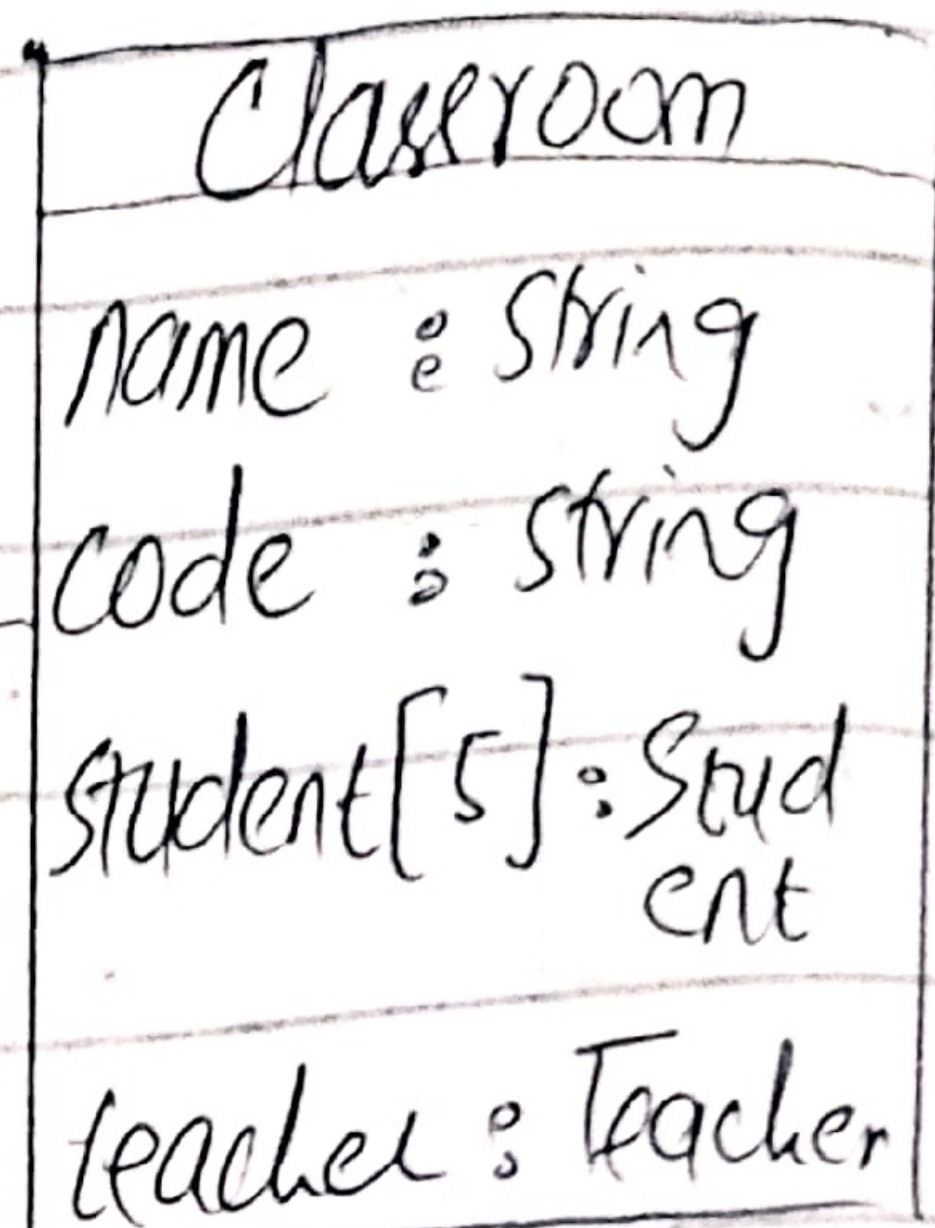 Classroom
name : String
code : string
student[5] : Stud
ent
teacher : Teacher